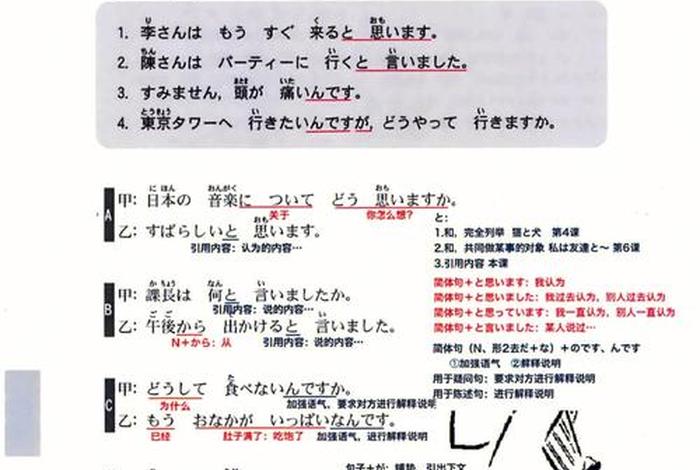 1. 李さんは もう すぐ 来ると 思います。
2. 陳さんは パーティーに 行くと 言いました。
3. すみません, 頭が 痛いんです。
4. 東京タワーへ 行きたいんですが, どうやって 行きますか。
A
甲: 日本の 音楽に ついて どう 思いますか。
关于 你怎么想?
乙: すばらしいと 思います。
引用内容: 认为的内容…
と:
1.和, 完全列举 猫と犬 第4课
2.和, 共同做某事的对象 私は友達と~ 第6课
3.引用内容 本课
简体句+と思います: 我认为
简体句+と思いました: 我过去认为, 别人过去认为
简体句+と思っています: 我一直认为, 别人一直认为
简体句+と言いました: 某人说过…
B
甲: 課長は 何と 言いましたか。
引用内容: 说的内容…
乙: 午後から 出かけると 言いました。
N+から: 从 引用内容: 说的内容…
简体句(N、形2去だ+な)+のです、んです
①加强语气 ②解释说明
用于疑问句: 要求对方进行解释说明
用于陈述句: 进行解释说明
C
甲: どうして 食べないんですか。
为什么 加强语气、要求对方进行解释说明
乙: もう おなかが いっぱいなんです。
已经 肚子满了: 吃饱了 加强语气, 进行解释说明